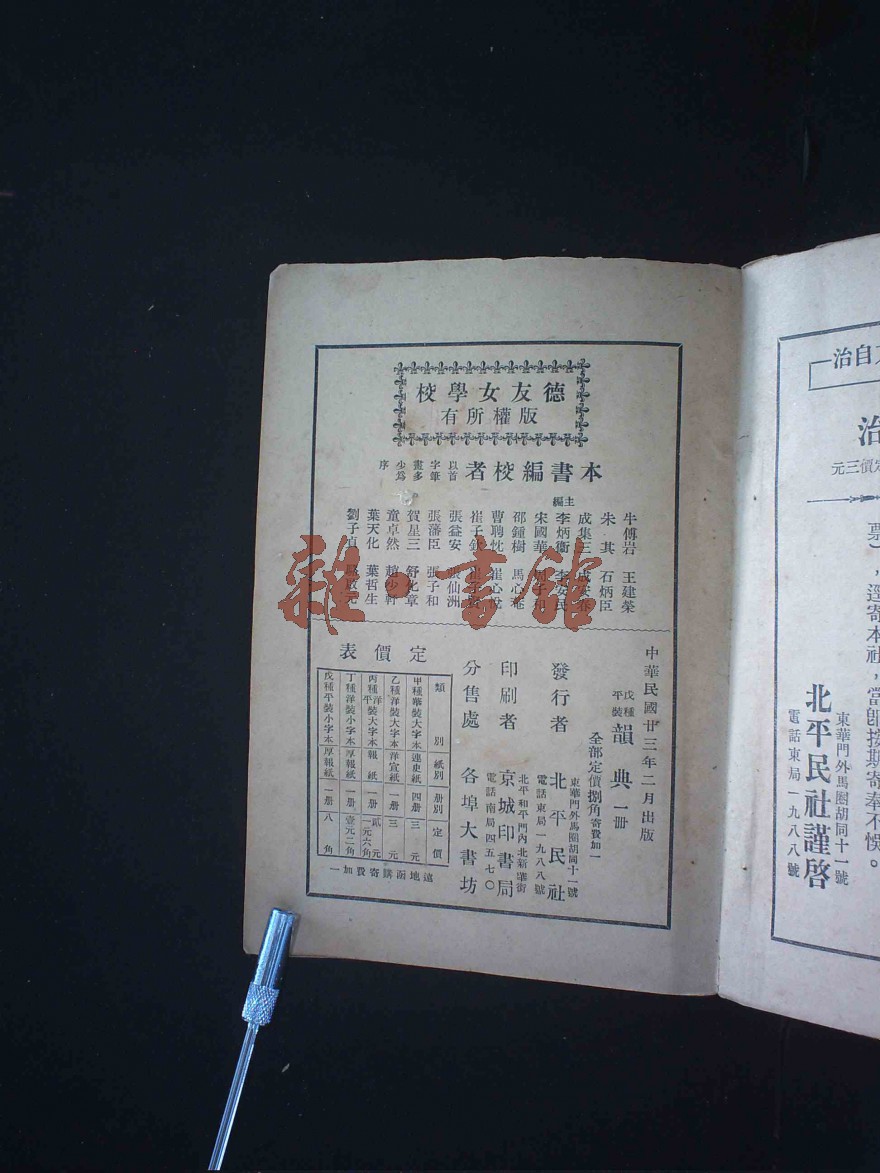 德友女學校
版權所有
本書編校者
以首
字筆
畫多
少爲
序
主編
牛傅岩 王建榮
朱其 石炳臣
成集三
李炳衡 李安民
宋國華
邵鍾樹 馬心菴
曹聘忱 崔心悅
崔子
張益安 張仙洲
張藩臣 張子和
賀星三 舒化章
童卓然 趙少軒
葉天化 葉哲生
劉子貞
中華民國廿三年二月出版
戊種
平裝
韻典一册
全部定價捌角寄費加一
發行者 北平民社
東華門外馬圈胡同十一號
電話東局一九八八號
印刷者 京城印書局
北平和平門內北新華街
電話南局四五七〇
分售處 各埠大書坊
定價表
類別 紙別 册別 定價
甲種華裝大字本 連史紙 四册 三元
乙種洋裝大字本 洋宣紙 一册 三元
丙種洋平裝大字本 報紙 一册 貳元 一元六角
丁種洋裝小字本 厚報紙 一册 壹元二角
戊種平裝小字本 厚報紙 一册 八角
遠地函購寄費加一
自治
治
定價三元
票），逕寄本社，當卽按期寄奉不悞。
北平民社謹啓
東華門外馬圈胡同十一號
電話東局一九八八號
雜·書館